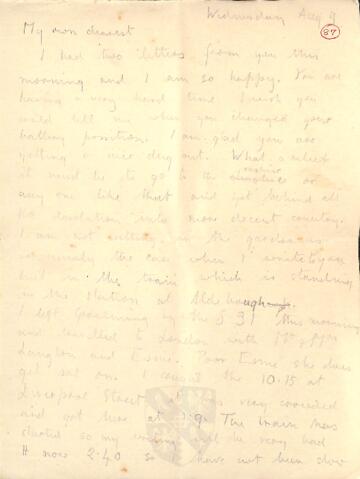 Wednesday Aug 9
87
My own dearest
I had two letters from you this
morning and I am so happy. You are
having a very hard time I wish you
could tell me when you changed your
battery position. I am glad you are
getting a nice dug out. What a relief
it must be to go to the or
any one like that and get behind all
the desolation into more decent country.
I am not writing in the garden as
is usually the case when I write to you
but in the train which is standing
in the station at Aldeburgh.
I left by the 8.31 this morning
and travelled to London with
Langton and Esme. Poor Esme she does
get sat on. I caught the 10.15 at
Liverpool Street very crowded
and got here at The train has
started so my writing will be very bad
It now 2.40 so I have not been slow